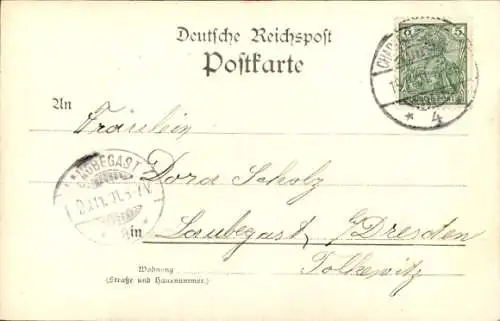 Deutsche Reichspost
Postkarte
5 5
CHAR
An
* 4
Fräulein
LAUBEGAST
Dora Scholz
in Laubegast b/Dresden
Wohnung
(Straße und Hausnummer.)
Tolkewitz